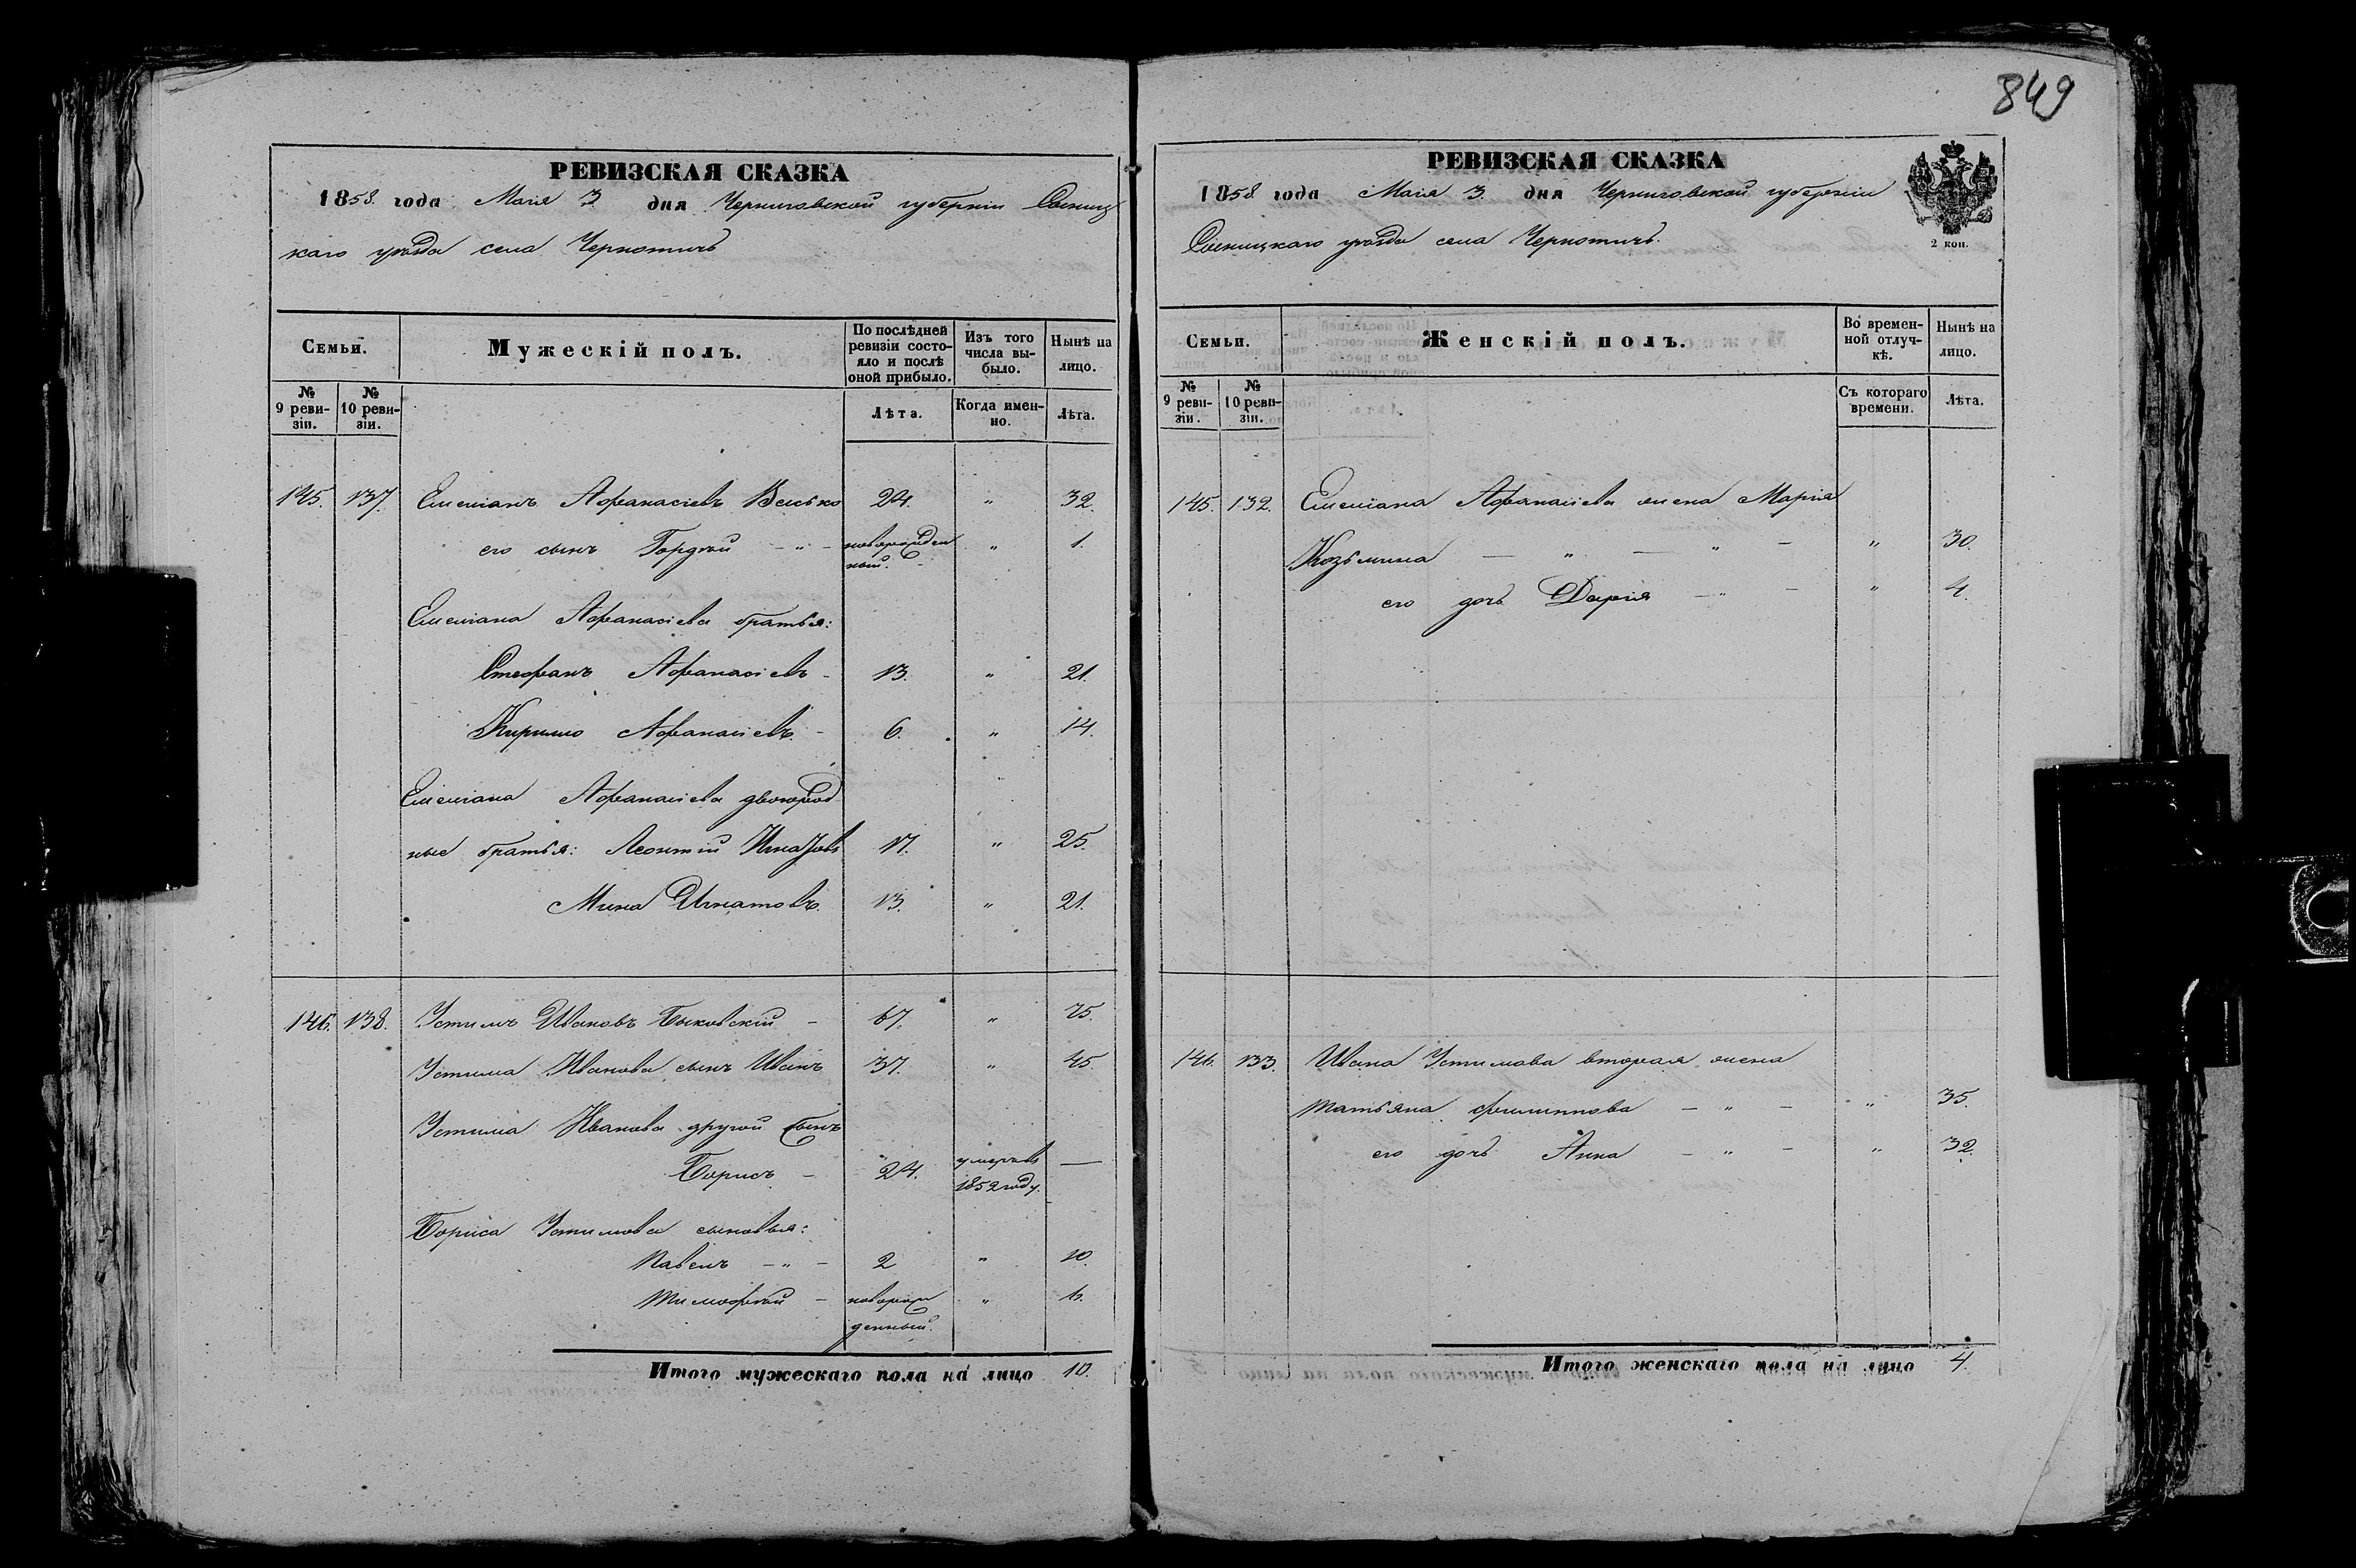 849
РЕВИЗСКАЯ СКАЗКА
1858 года Маія 3 дня Черниговской губерніи Сосниц
каго уѣзда села Чернотичъ
Семьи.
Мужескій полъ.
По послѣдней ревизіи состояло и послѣ оной прибыло.
Изъ того числа выбыло.
Нынѣ на лицо.
№ 9 ревизіи.
№ 10 ревизіи.
Лѣта.
Когда именно.
Лѣта.
145. 137. Емеліанъ Афанасіевъ 24. " 32.
его сынъ Гордѣй - " - новорожден
ный. " 1.
Емеліана Афанасіева братья:
Стефанъ Афанасіевъ - 13. " 21.
Кирило Афанасіевъ - 6. " 14.
Емеліана Афанасіева двоюрод
ные братья: Леонтій Игнатовъ 17. " 25.
Мина Игнатовъ. 13. " 21.
146. 138. Устимъ Ивановъ Быковскій - 67. " 75.
Устима Иванова сынъ Иванъ 37. " 45.
Устима Иванова другой сынъ
Борисъ - 24. умеръ въ
1852 году. —
Бориса Устимова сыновья:
Павелъ - " - 2 " 10.
Тимофѣй - новорож
денный. " 6.
Итого мужескаго пола на лицо 10.
РЕВИЗСКАЯ СКАЗКА
1858 года Маія 3. дня Черниговской губерніи
Сосницкаго уѣзда села Чернотичъ.
2 коп.
Семьи.
Женскій полъ.
Во временной отлучкѣ.
Нынѣ на лицо.
№ 9 ревизіи.
№ 10 ревизіи.
Съ котораго времени.
Лѣта.
145. 132. Емеліана Афанасіева жена Марія
Козьмина — " — " - " 30.
его дочь Дарія - " - " 4.
146. 133. Ивана Устимова вторая жена
Татьяна Филиппова - " - " 35.
его дочь Анна - " - " 32.
Итого женскаго пола на лицо 4.